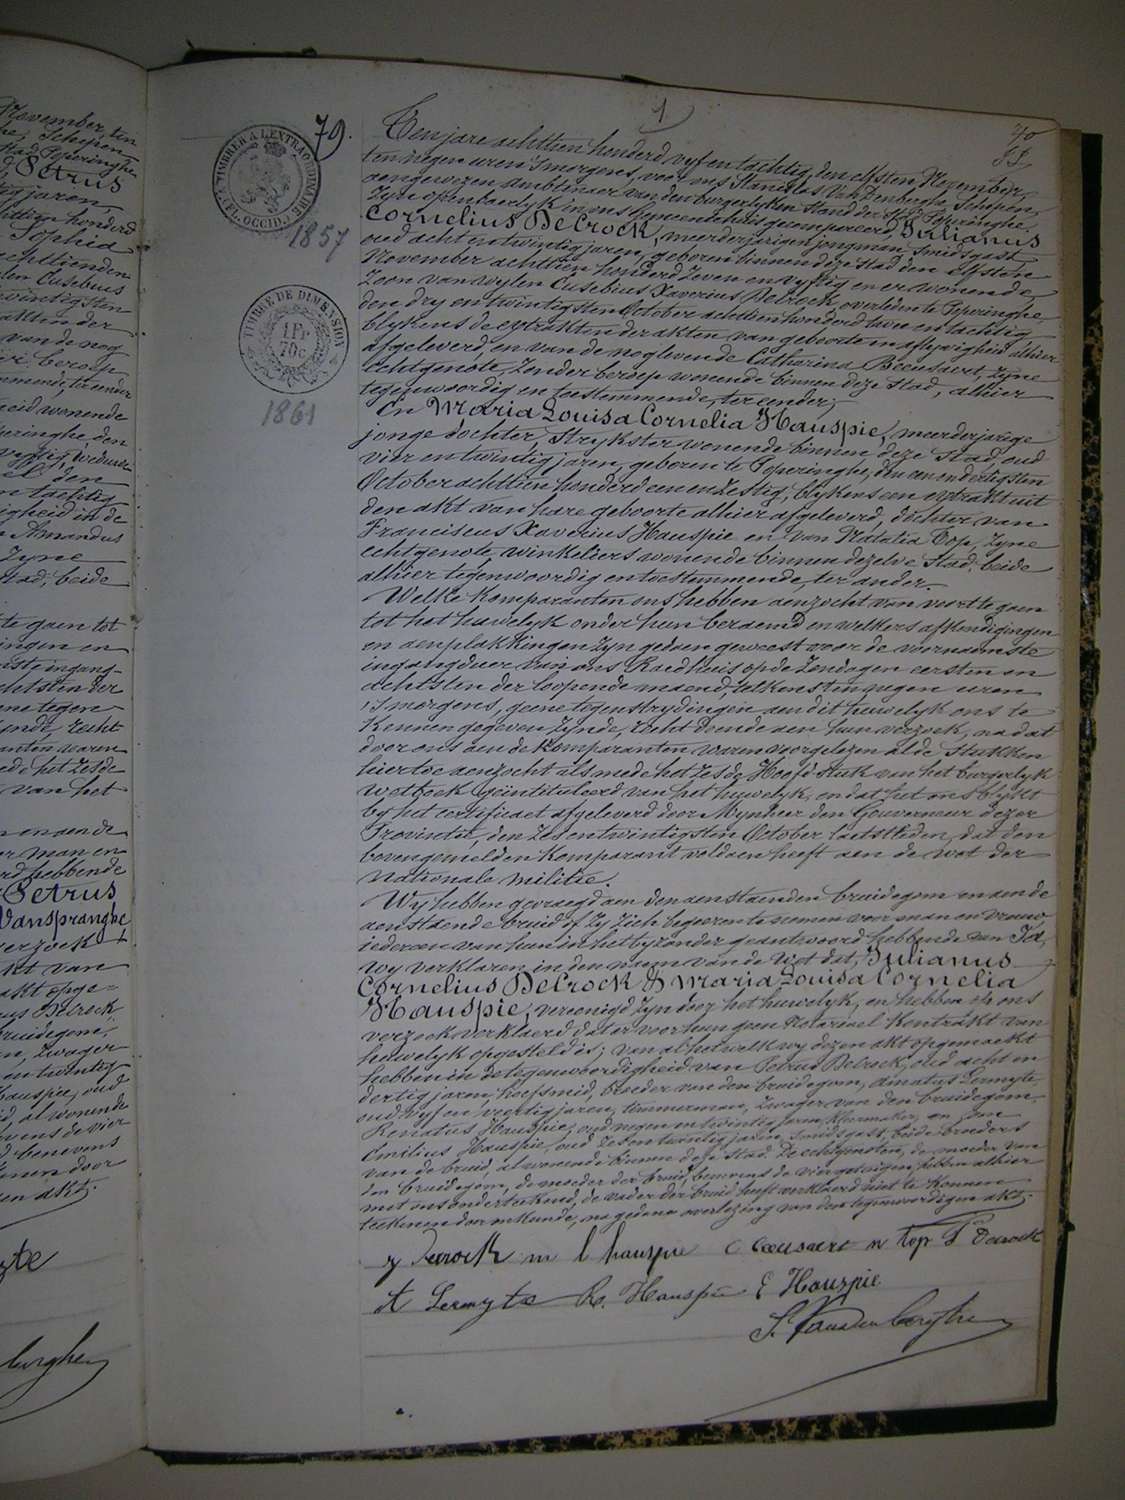 79.
1
70
TIMBRER A L'EXTRAORDINAIRE
FL. OCCID.
1857
TIMBRE DE DIMENSION
1 Fr
70c
1861
Ten jare achttien honderd vyf en tachtig, den elfsten November,
ten negen uren 's morgens, voor ons Stanislas Van Denberghe, Schepen,
aengewezen ambtenaer van den burgerlyken Stand der Stad Poperinghe,
Zyn openbaerlyk in ons Gemeentehuis gecompareerd, Julianus
Cornelius Decrock, meerderjarigen jongman, Smidsgast,
oud acht en twintig jaren, geboren binnen deze Stad den elfsten
November achttien honderd zeven en vyftig en er wonende,
Zoon van wylen Eusebius Xaverius Decrock, overleden te Poperinghe
den dry en twintigsten October achttien honderd twee en tachtig
blykens de extrakten der akten van geboorte en aflyvigheid alhier
afgeleverd, en van de noglevende Catharina Beeusaert, Zyne
echtgenote, zonder beroep wonende binnen deze Stad, alhier
tegenwoordig en toestemmende, ter eender;
En Maria Louisa Cornelia Hauspie, meerderjarige
jonge dochter, Strykster wonende binnen deze Stad, oud
vier en twintig jaren, geboren te Poperinghe, den een en dertigsten
October achttien honderd een en zestig, blykens een extrakt uit
den akt van hare geboorte alhier afgeleverd, dochter van
Franciscus Xaverius Hauspie en van Natalia Top, Zyne
echtgenote, winkeliers wonende binnen dezelve Stad, beide
alhier tegenwoordig en toestemmende, ter ander.
Welke Komparanten ons hebben aenzocht van voort te gaen
tot het huwelyk onder hun beraemd en welkers afkondigingen
en aenplakkingen zyn gedaen geweest voor de voornaemste
ingangdeur van ons Raedhuis op de Zondagen eersten en
achtsten der loopende maend, telkens ten negen uren
's morgens, geene tegenstrydingen aen dit huwelyk ons te
Kennen gegeven zynde, recht doende aen hun verzoek, na dat
door ons aen de Komparanten waren voorgelezen al de Stukken
hiertoe aenzocht als mede het zesde Hoofdstuk van het burgerlyk
wetboek geïntituleerd van het huwelyk, en dat het ons blykt
by het certificaet afgeleverd door Mynheer den Gouverneur dezer
Provincie, den zes en twintigsten October laetstleden, dat den
bovengemelden Komparant voldaen heeft aen de wet der
nationale militie.
Wy hebben gevraegd aen den aenstaenden bruidegom en aen de
aenstaende bruid of zy zich begeeren te nemen voor man en vrouw
iedereen van hun in het byzonder geantwoord hebbende van Ja,
wy verklaren in den naem van de Wet dat, Julianus
Cornelius Decrock & Maria Louisa Cornelia
Hauspie, vereenigd zyn door het huwelyk, en hebben op ons
verzoek verklaerd dat er voor hun geen Notarieel Kontrakt van
huwelyk opgesteld is; van al het welk wy dezen akt opgemaekt
hebben in de tegenwoordigheid van Petrus Decrock, oud acht en
dertig jaren, hoefsmid, broeder van den bruidegom, Amatus Lermyte,
oud vyf en veertig jaren, timmerman, Zwager van den bruidegom,
Renatus Hauspie, oud negen en twintig jaren, Kleermaker, en van
Emilius Hauspie, oud zes en twintig jaren, Smidsgast, beide broeders
van de bruid, al wonende binnen deze Stad. De echtgenoten, de moeder van
den bruidegom, de moeder der bruid, benevens de vier getuigen, hebben alhier
met ons ondertekend, de vader der bruid heeft verklaerd niet te Konnen
teekenen door onkunde, na gedane overlezing van den tegenwoordigen akt.
J Decrock m l hauspie C Beeusaert n top P Decrock
A Lermyte R. Hauspie E Hauspie
S. Vandenberghe